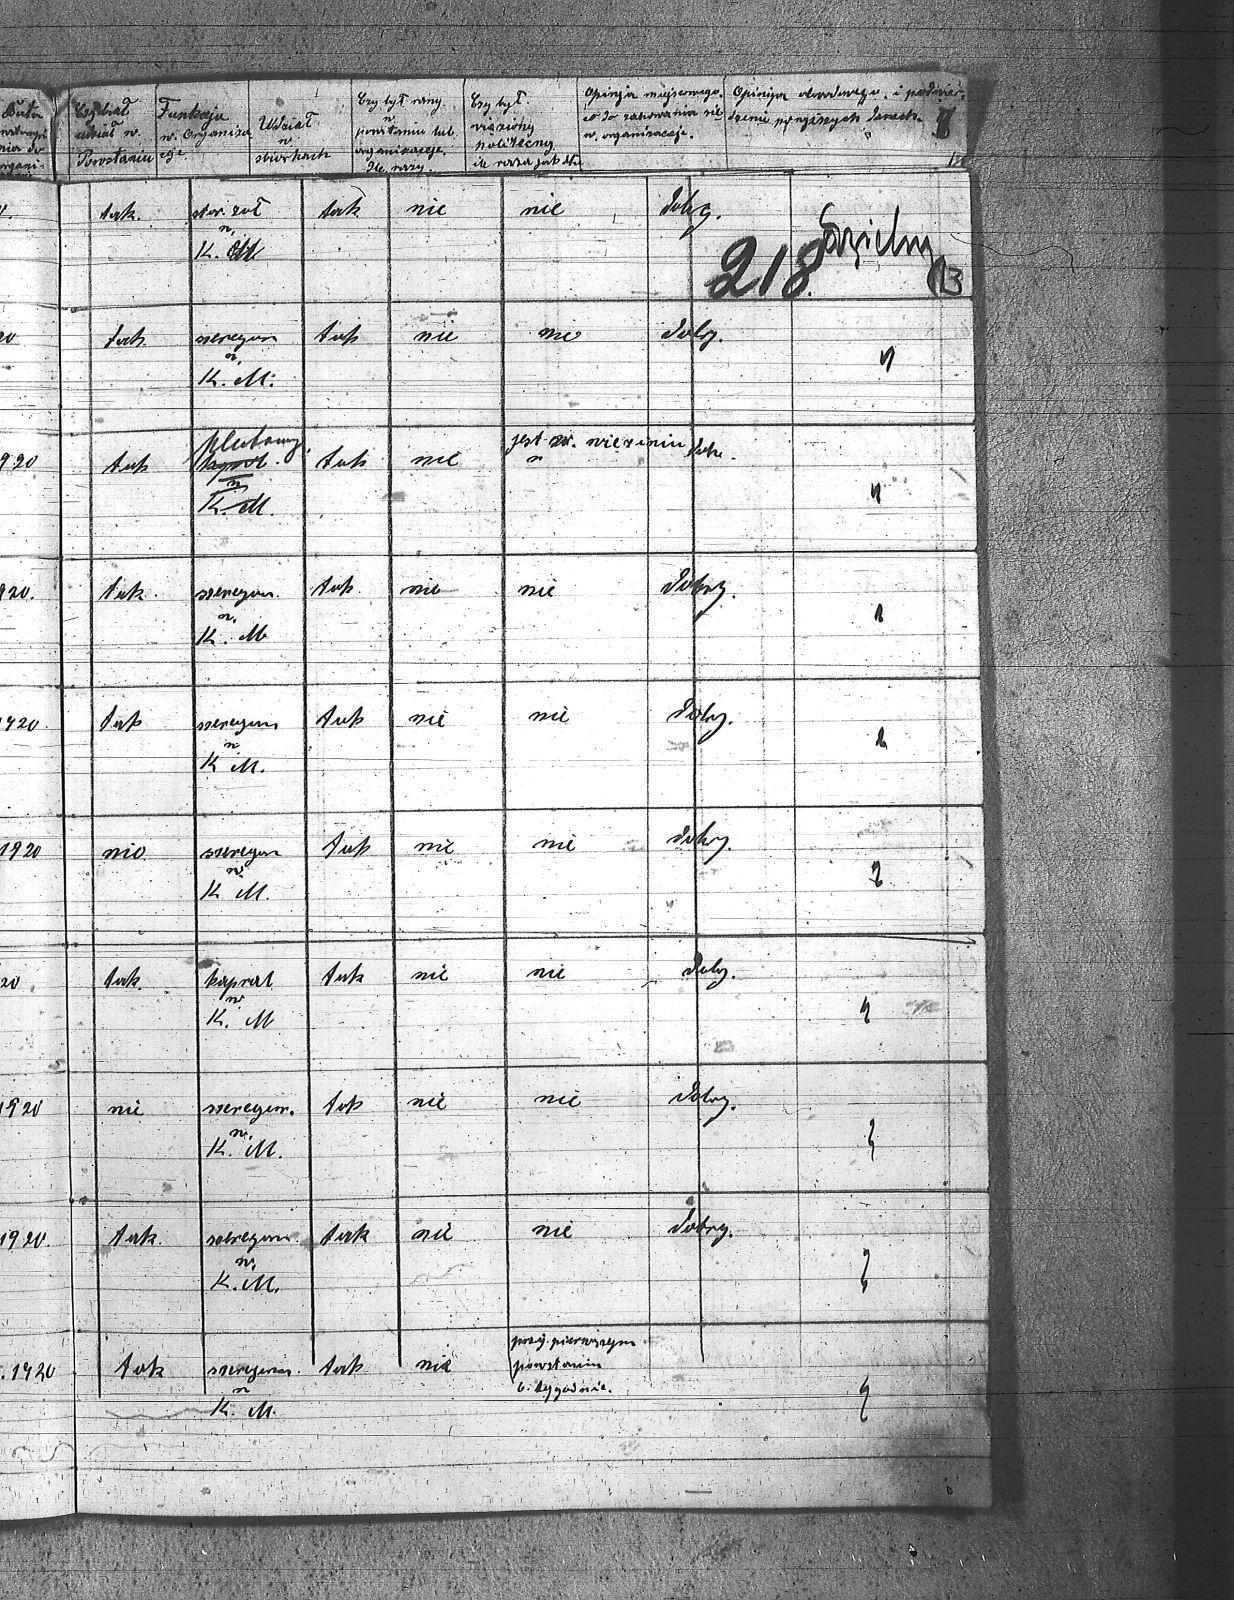 Data
Czy brał
udział w.
Powstaniu
Funkcja
w. Organiza
cje.
Udział
w
zbiorkach
Czy był rany
w
powstaniu lub
organizacje.
Ile razy.
Czy był.
więziony
politczny
ile raza jak dłu
Opinja miejscowego.
co do zachowania się
w. organizacje.
Opinja obwodowego. i podwier.
dzenie powyższych danych
II
tak. tak nie nie dobry.
w.
K.
218
13
20 tak. szeregow tak nie nie dobry.
w.
K. M.
920 tak tak nie jest w. więzieniu
w
K. M.
920. tak. szeregow. tak. nie nie dobry.
w.
K. M
1920 tak szeregow tak nie nie dobry.
w
K M.
1920 nie szeregow tak nie nie dobry.
w.
K M.
20 tak. kapral tak nie nie dobry.
w
K. M
1920 nie szeregow. tak nie nie dobry.
w.
K. M.
1920. tak. szeregow tak nie nie dobry.
w.
K. M.
. 1920 tak szeregow. tak nie przy. pierwszym
powstaniu
6. tygodnie.
w
K. M.